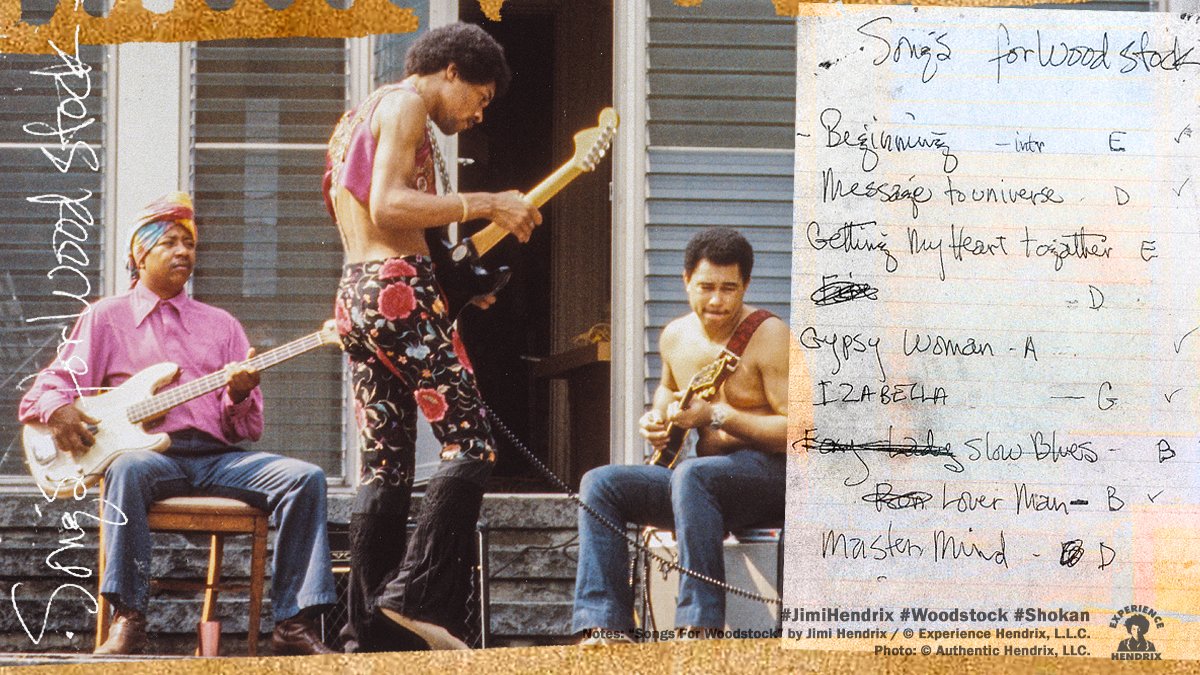 Songs for Wood stock
Songs for Wood stock
- Beginning - intr E ✓
Message to universe - D ✓
Getting My Heart togather E
- D
Gypsy Woman - A ✓
IZABELLA - G ✓
Slow Blues - B
Lover Man - B ✓
Master Mind - D
#JimiHendrix #Woodstock #Shokan
Notes: "Songs For Woodstock" by Jimi Hendrix / © Experience Hendrix, L.L.C.
Photo: © Authentic Hendrix, LLC.
EXPERIENCE
HENDRIX